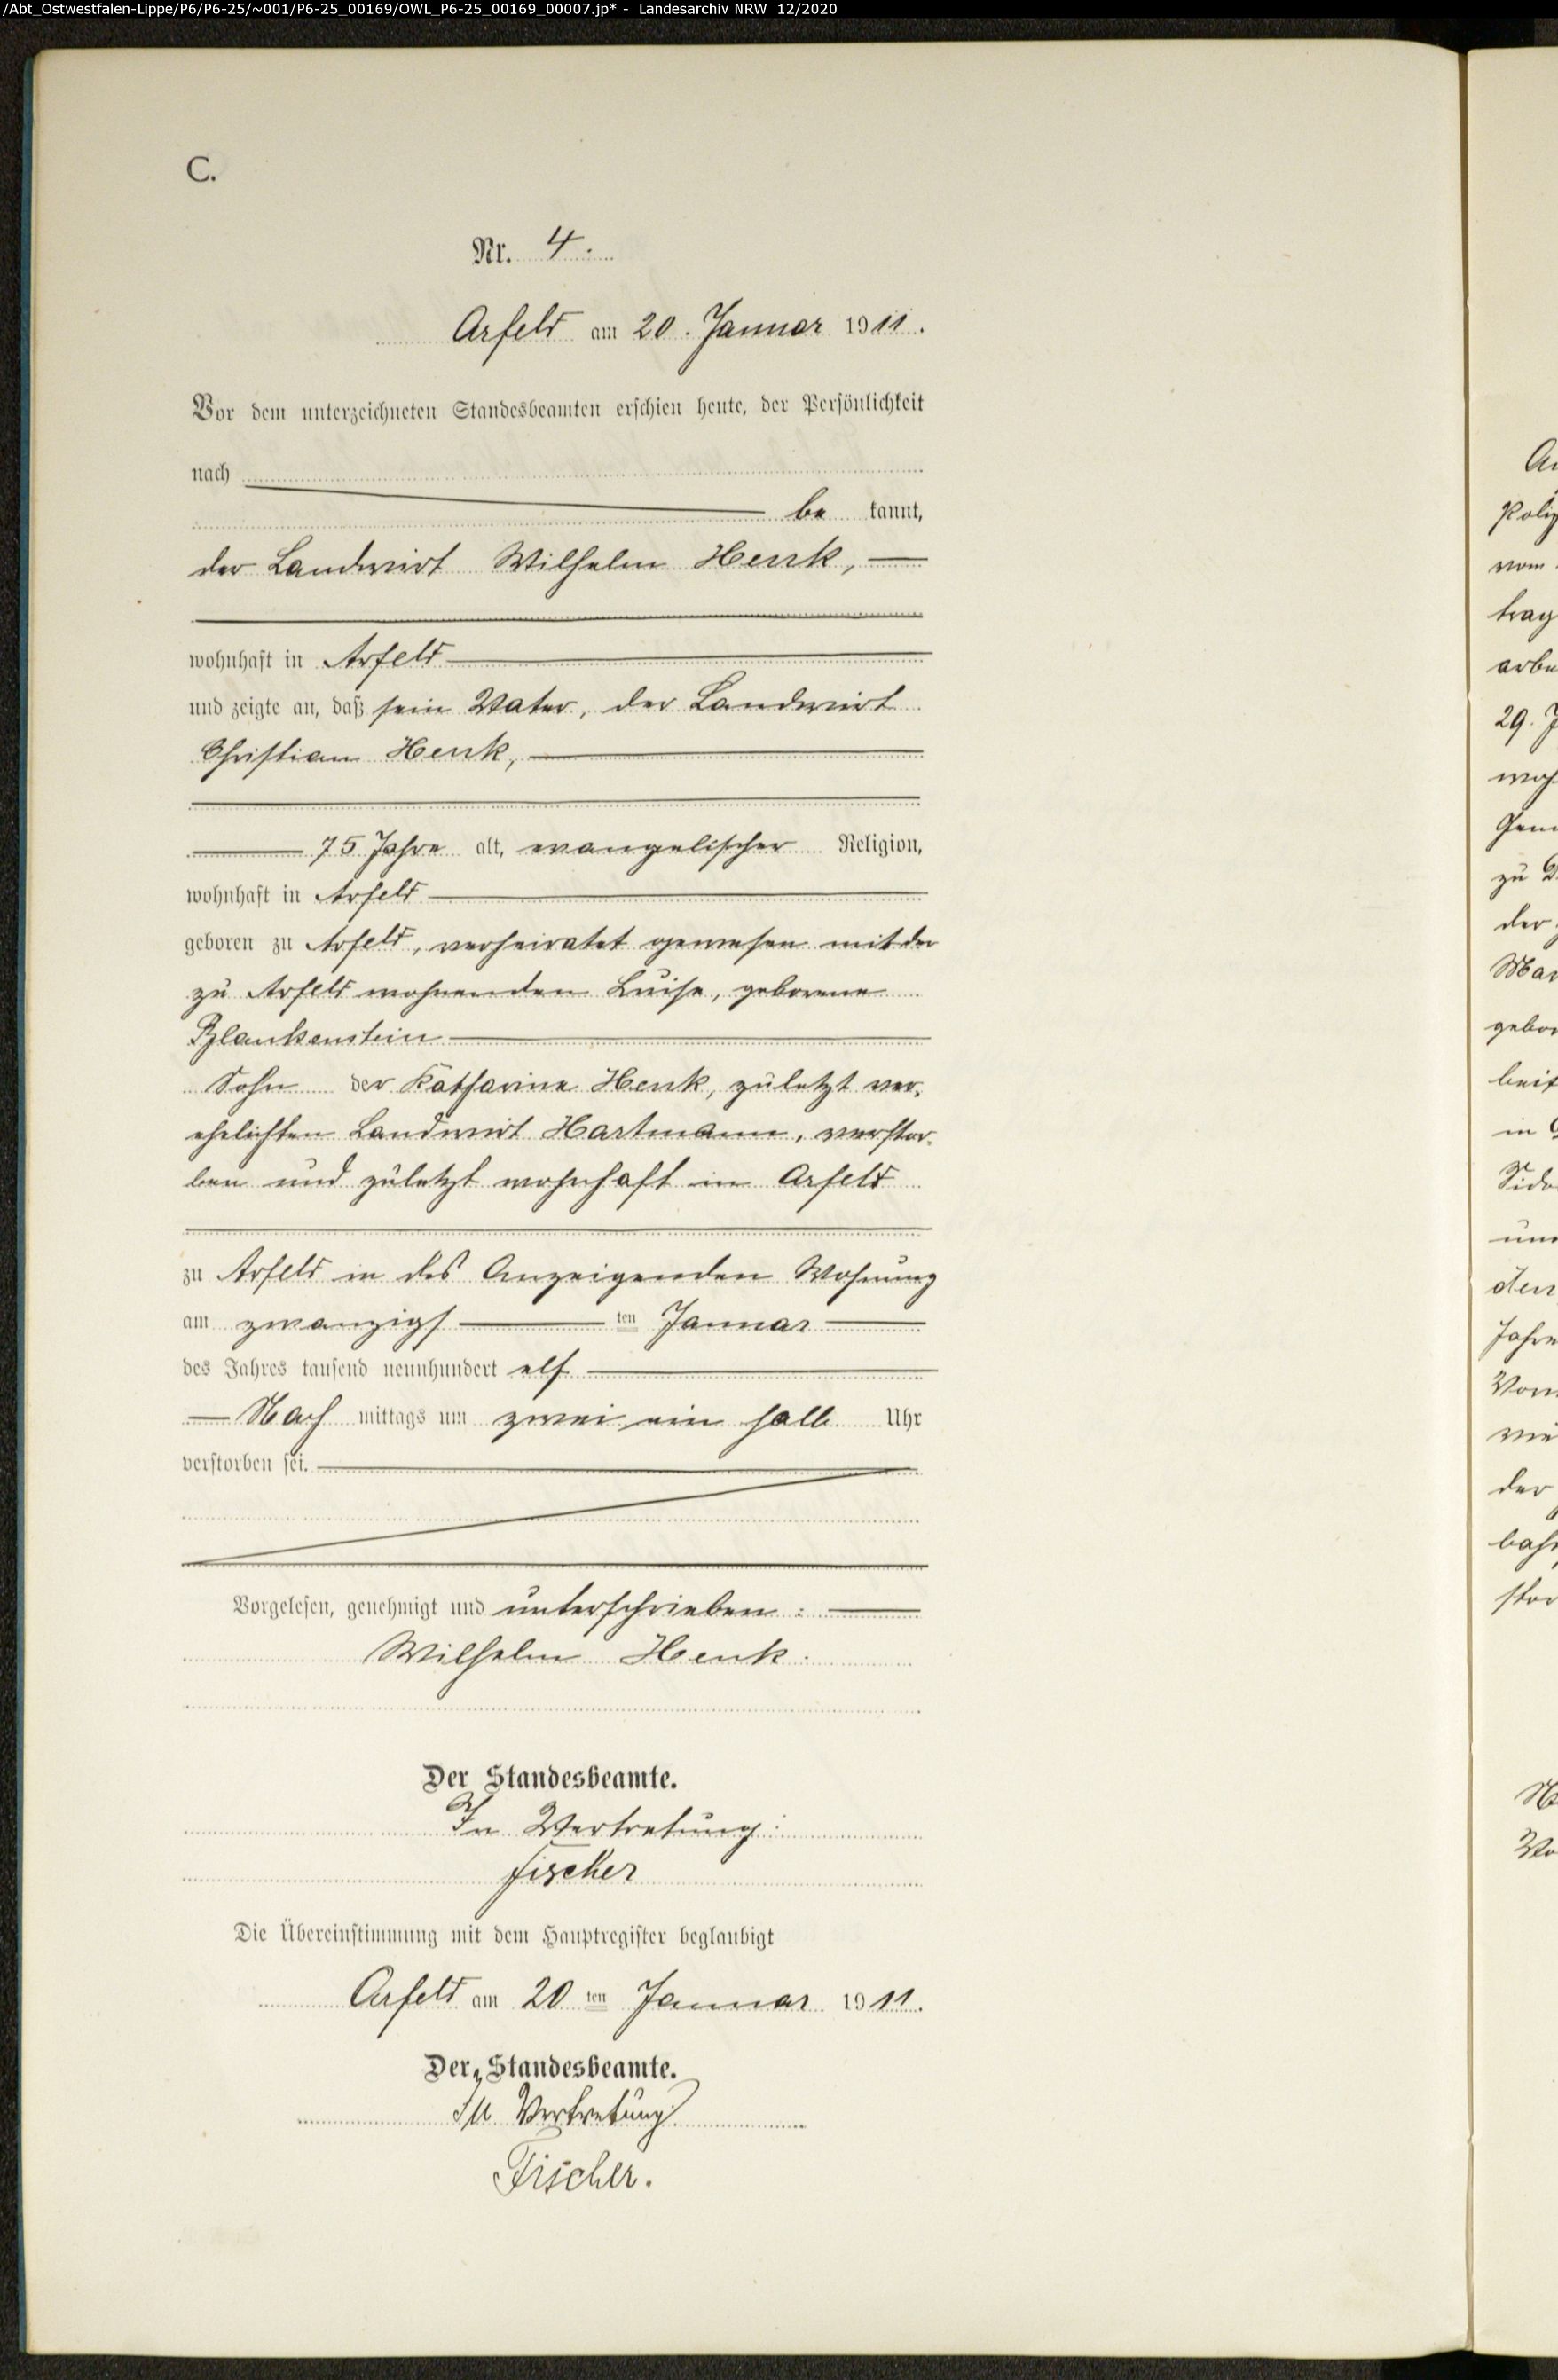 /Abt_Ostwestfalen-Lippe/P6/P6-25/~001/P6-25_00169/OWL_P6-25_00169_00007.jp* - Landesarchiv NRW 12/2020
C.
Nr. 4.
Arfeld am 20. Januar 1911.
Vor dem unterzeichneten Standesbeamten erschien heute, der Persönlichkeit
nach
be kannt,
der Landwirt Wilhelm Henk,
wohnhaft in Arfeld
und zeigte an, daß sein Vater, der Landwirt
Christian Henk,
75 Jahre alt, evangelischer Religion,
wohnhaft in Arfeld
geboren zu Arfeld, verheiratet gewesen mit der
zu Arfeld wohnenden Luise, geborene
Blankenstein
Sohn der Katharina Henk, zuletzt ver-
ehelichten Landwirt Hartmann, verstor-
ben und zuletzt wohnhaft in Arfeld
zu Arfeld in des Anzeigenden Wohnung
am zwanzigs ten Januar
des Jahres tausend neunhundert elf
Nach mittags um zwei ein halb Uhr
verstorben sei.
Vorgelesen, genehmigt und unterschrieben:
Wilhelm Henk.
Der Standesbeamte.
In Vertretung:
Fischer
Die Übereinstimmung mit dem Hauptregister beglaubigt
Arfeld am 20 ten Januar 1911.
Der Standesbeamte.
In Vertretung:
Fischer.